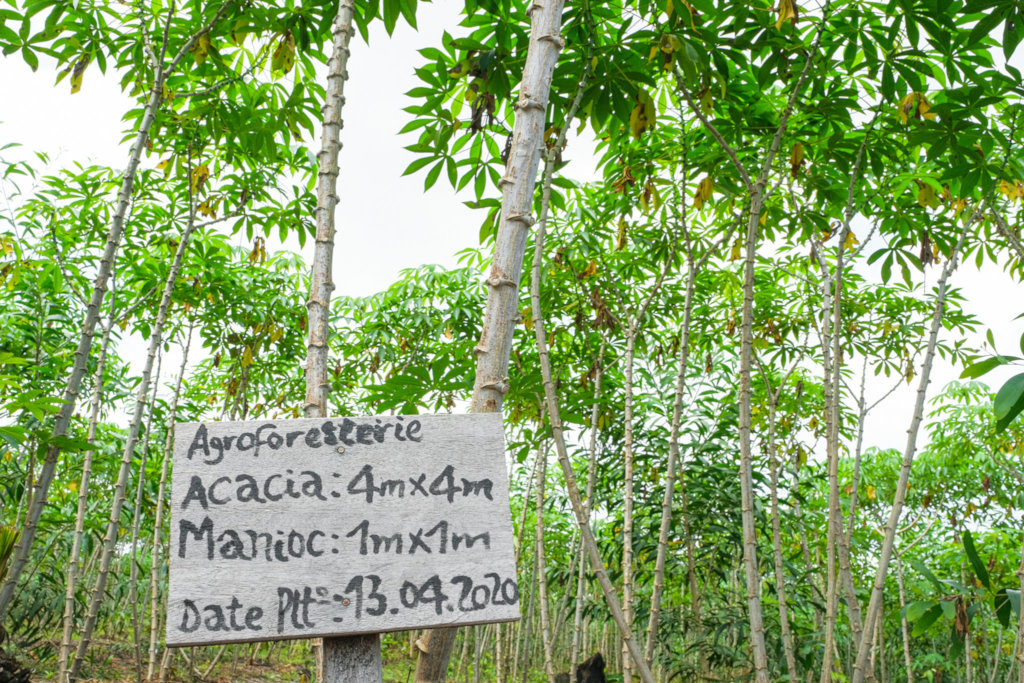 Agroforesterie
Acacia: 4m×4m
Manioc: 1m×1m
Date Pltº: 13.04.2020